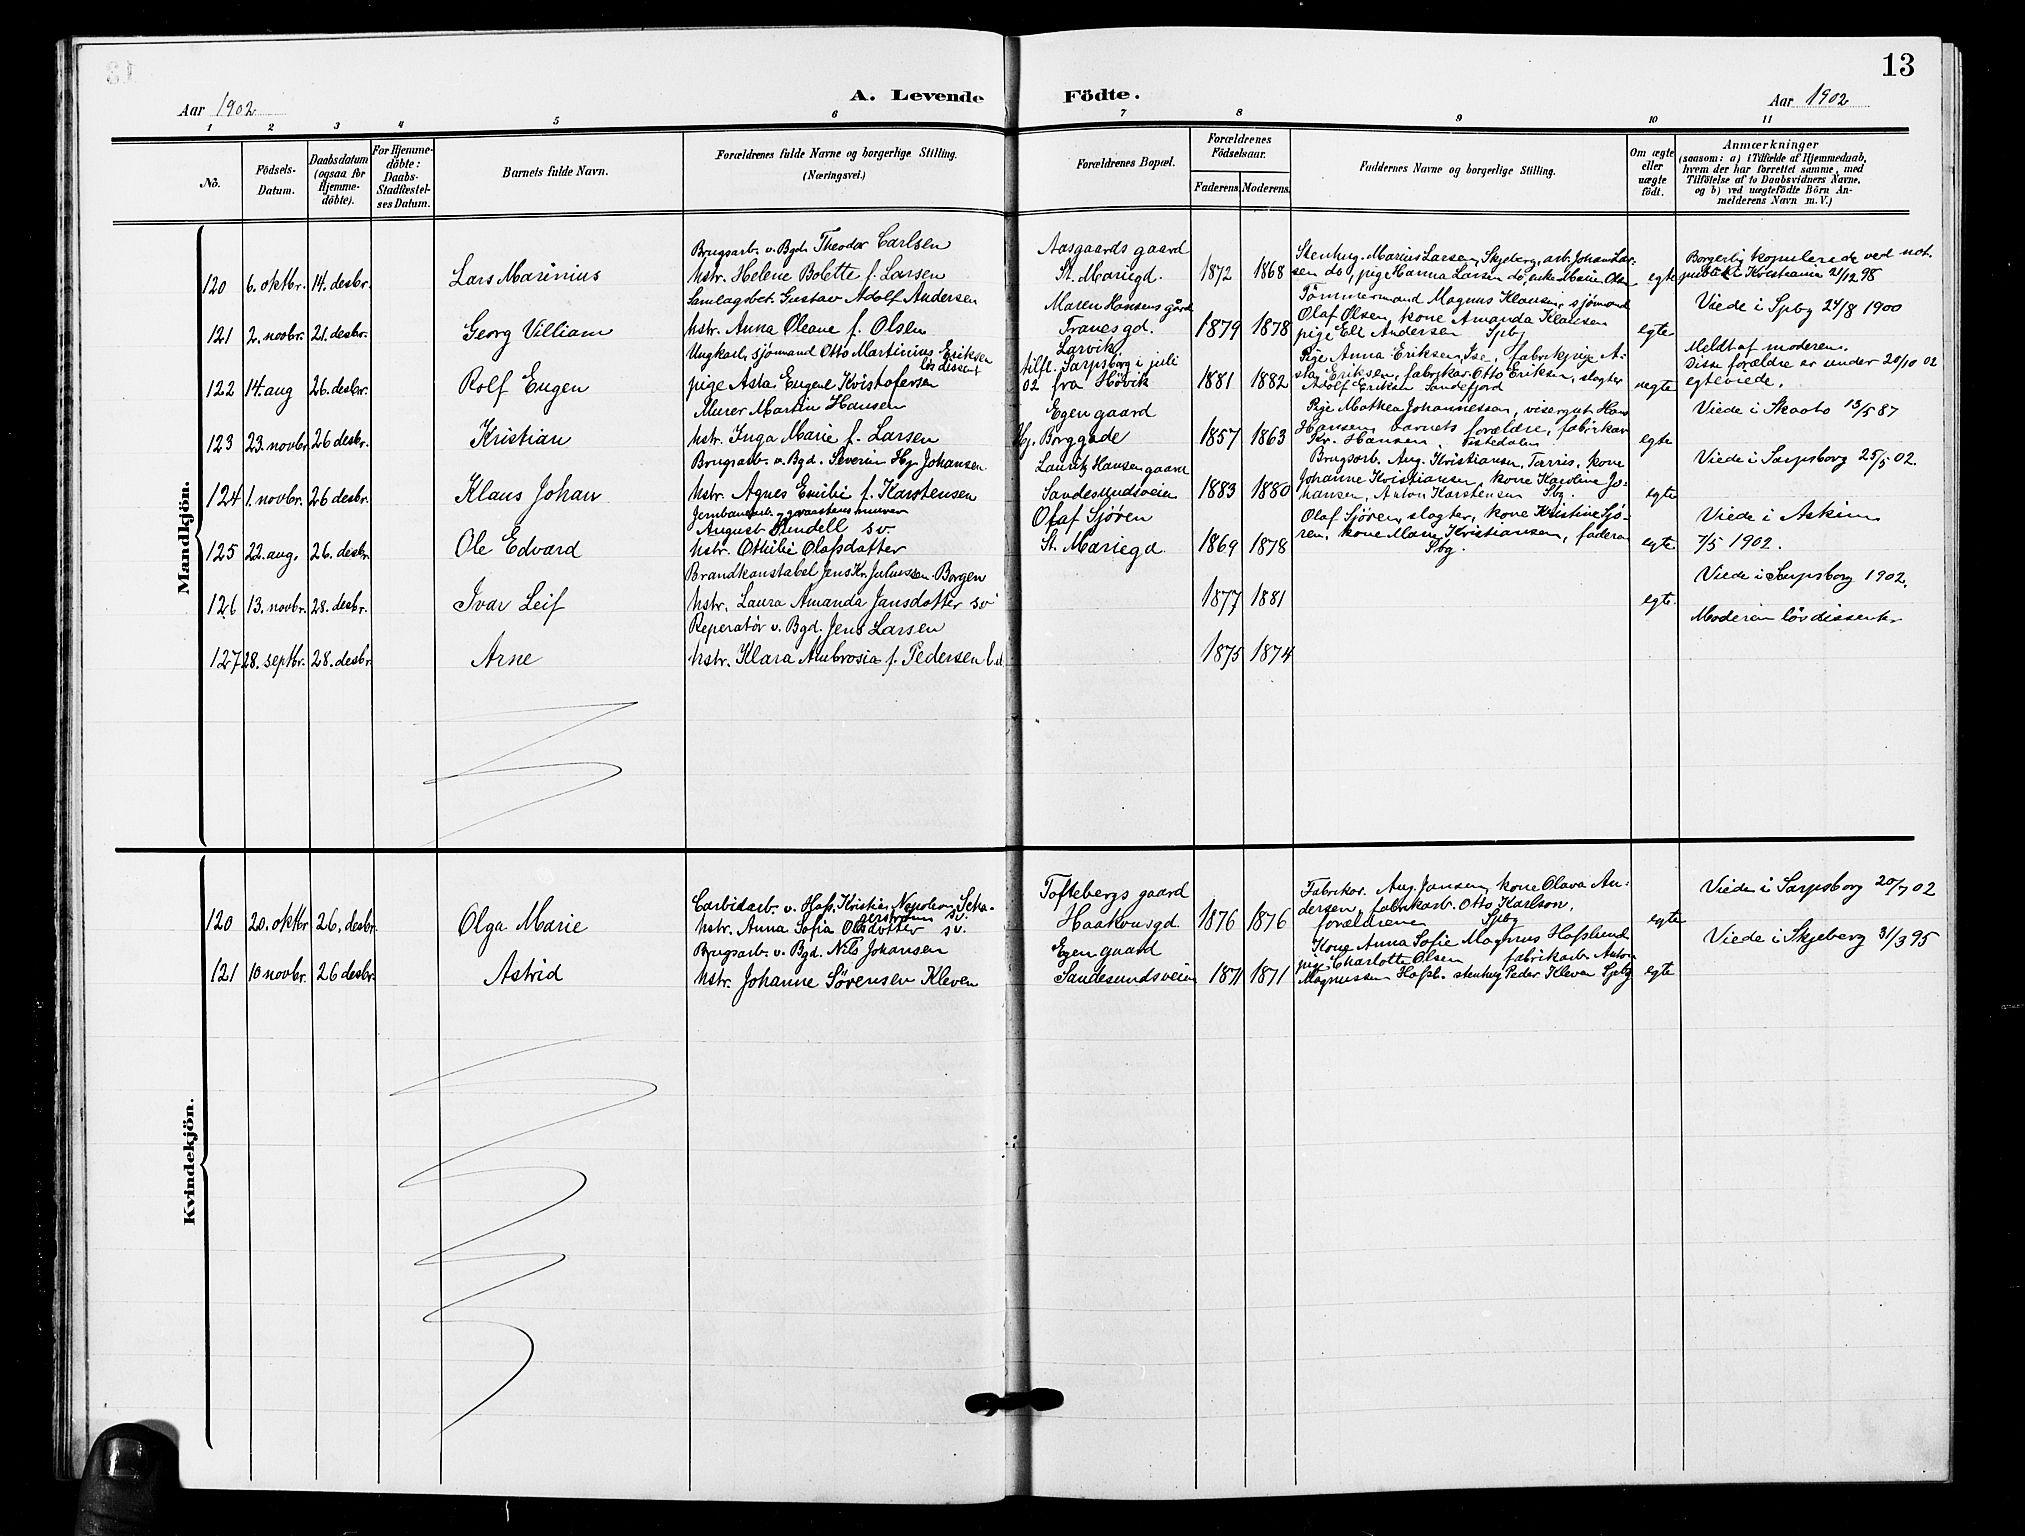 13
Aar 1902
A. Levende Födte.
Aar 1902
1 2 3 4 5 6 7 8 9 10 11
No.
Födsels-Datum.
Daabsdatum (ogsaa for Hjemme-döbte).
For Hjemme-döbte: Daabs-Stadfæstel-ses Datum.
Barnets fulde Navn.
Forældrenes fulde Navne og borgerlige Stilling. (Næringsvei.)
Forældrenes Bopæl.
Forældrenes Födselsaar.
Faderens. Moderens.
Faddernes Navne og borgerlige Stilling.
Om ægte eller uægte födt.
Anmærkninger
(saasom: a) i Tilfælde af Hjemmedaab,
hvem der har forrettet samme, med
Tilföielse af to Daabsvidners Navne,
og b) ved uægtefödte Börn An-
melderens Navn m. V.)
Mandkjön.
120 6. oktbr. 14. desbr. Lars Marinius
Brugsarb. v. Bgd. Theodor Carlsen
hstr. Helene Bolette f. Larsen
Aasgaards gaard
St. Mariegd. 1872 1868
Stenhug. Marius Larsen, Skjeberg, arb. Johan Lar-
sen do, pige Hanna Larsen do, enke Marie Olsen
egte
Borgerlig kopulerede ved not.
publ. i Kristiania 2/12 98
121 2. novbr. 21. desbr. Georg Villiam
Samlagsbet. Gustav Adolf Andersen
hstr. Anna Oleane f. Olsen
Maren Hansens gård
Tranesgd. 1879 1878
Tömmermand Magnus Klausen, sjömand
Olaf Olsen, kone Amanda Klausen
pige Ell Andersen Spbg
egte
Viede i Spbg 24/8 1900
122 14. aug 26. desbr. Rolf Eugen
Ungkarl, sjömand Otto Martinius Eriksen
lös dissent
pige Asta Eugene Kristofersen
Larvik
tilfl. Sarpsborg i juli
02 fra Hövik 1881 1882
Pige Anna Eriksen, Ise, fabrikpige A-
sta Eriksen, fabrikar. Otto Eriksen, slagter
Adolf Eriksen Sandefjord
uegte
Meldt af moderen.
Disse forældre er under 20/10 02
egteviede.
123 23. novbr. 26 desbr. Kristian
Murer Martin Hansen
hstr. Inga Marie f. Larsen
Egen gaard
Hj. Borggade 1857 1863
Pige Mathea Johannessen, visergut Hans
Hansen, barnets forældre, fabrikar
Kr. Hansen, Tistedalen
egte
Viede i Skaato 13/5 87
124 1. novbr. 26 desbr. Klaus Johan
Brugsarb. v. Bgd. Severin Hg. Johansen
hstr. Agnes Emilie f. Karstensen
Lauritz Hansen gaard
Sandesundsveien 1883 1880
Brugsarb. Aug. Kristiansen, Torris, kone
Johanne Kristiansen, kone Karoline Jo-
hansen, Anton Karstensen Sbg.
egte
Viede i Sarpsborg 25/5 02.
125 22. aug. 26. desbr. Ole Edvard
Jernbanearb. graastensmurer
August Lundell sv.
hstr. Othilie Olafsdatter
Olaf Sjören
St. Mariegd. 1869 1878
Olaf Sjören, slagter, kone Kristine Sjö-
ren, kone Marie Kristiansen, faderen
Sbg.
egte
Viede i Askim
7/5 1902.
126 13. novbr. 28. desbr. Ivar Leif
Brandkonstabel Jens Kr. Juliussen Borgen
hstr. Laura Amanda Jansdotter sv
1877 1881
egte.
Viede i Sarpsborg 1902.
127 28. septbr. 28. desbr. Arne
Reperatör v. Bgd. Jens Larsen
hstr. Klara Ambrosia f. Pedersen
1875 1874
Moderen lösdissenter
Kvindekjön.
120 20. oktbr 26. desbr. Olga Marie
Carbidarb. v. Hafs. Kristian Napoleon Scha-
gerström sv.
hstr. Anna Sofia Olsdotter sv.
Toftebergs gaard
Haakonsgd. 1876 1876
Fabrikar. Aug. Jansen, kone Olava An-
dersen, fabrikarb. Otto Karlson,
forældrene Spbg
egte
Viede i Sarpsborg 20/7 02
121 10 novbr. 26 desbr. Astrid
Brugsarb. v. Bgd. Nils Johansen
hstr. Johanne Sörensen Kleven
Egen gaard
Sandesundsveien 1871 1871
Kone Anna Sofie Magnus Hafslund
pige Charlotte Olsen fabrikarb. Anton
Magnussen Hafsl. stenhug Peder Kleven Spbg
egte
Viede i Skjeberg 31/3 95